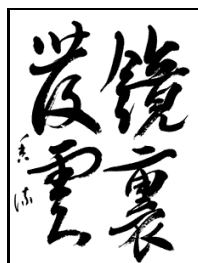 鏡裏
發雲